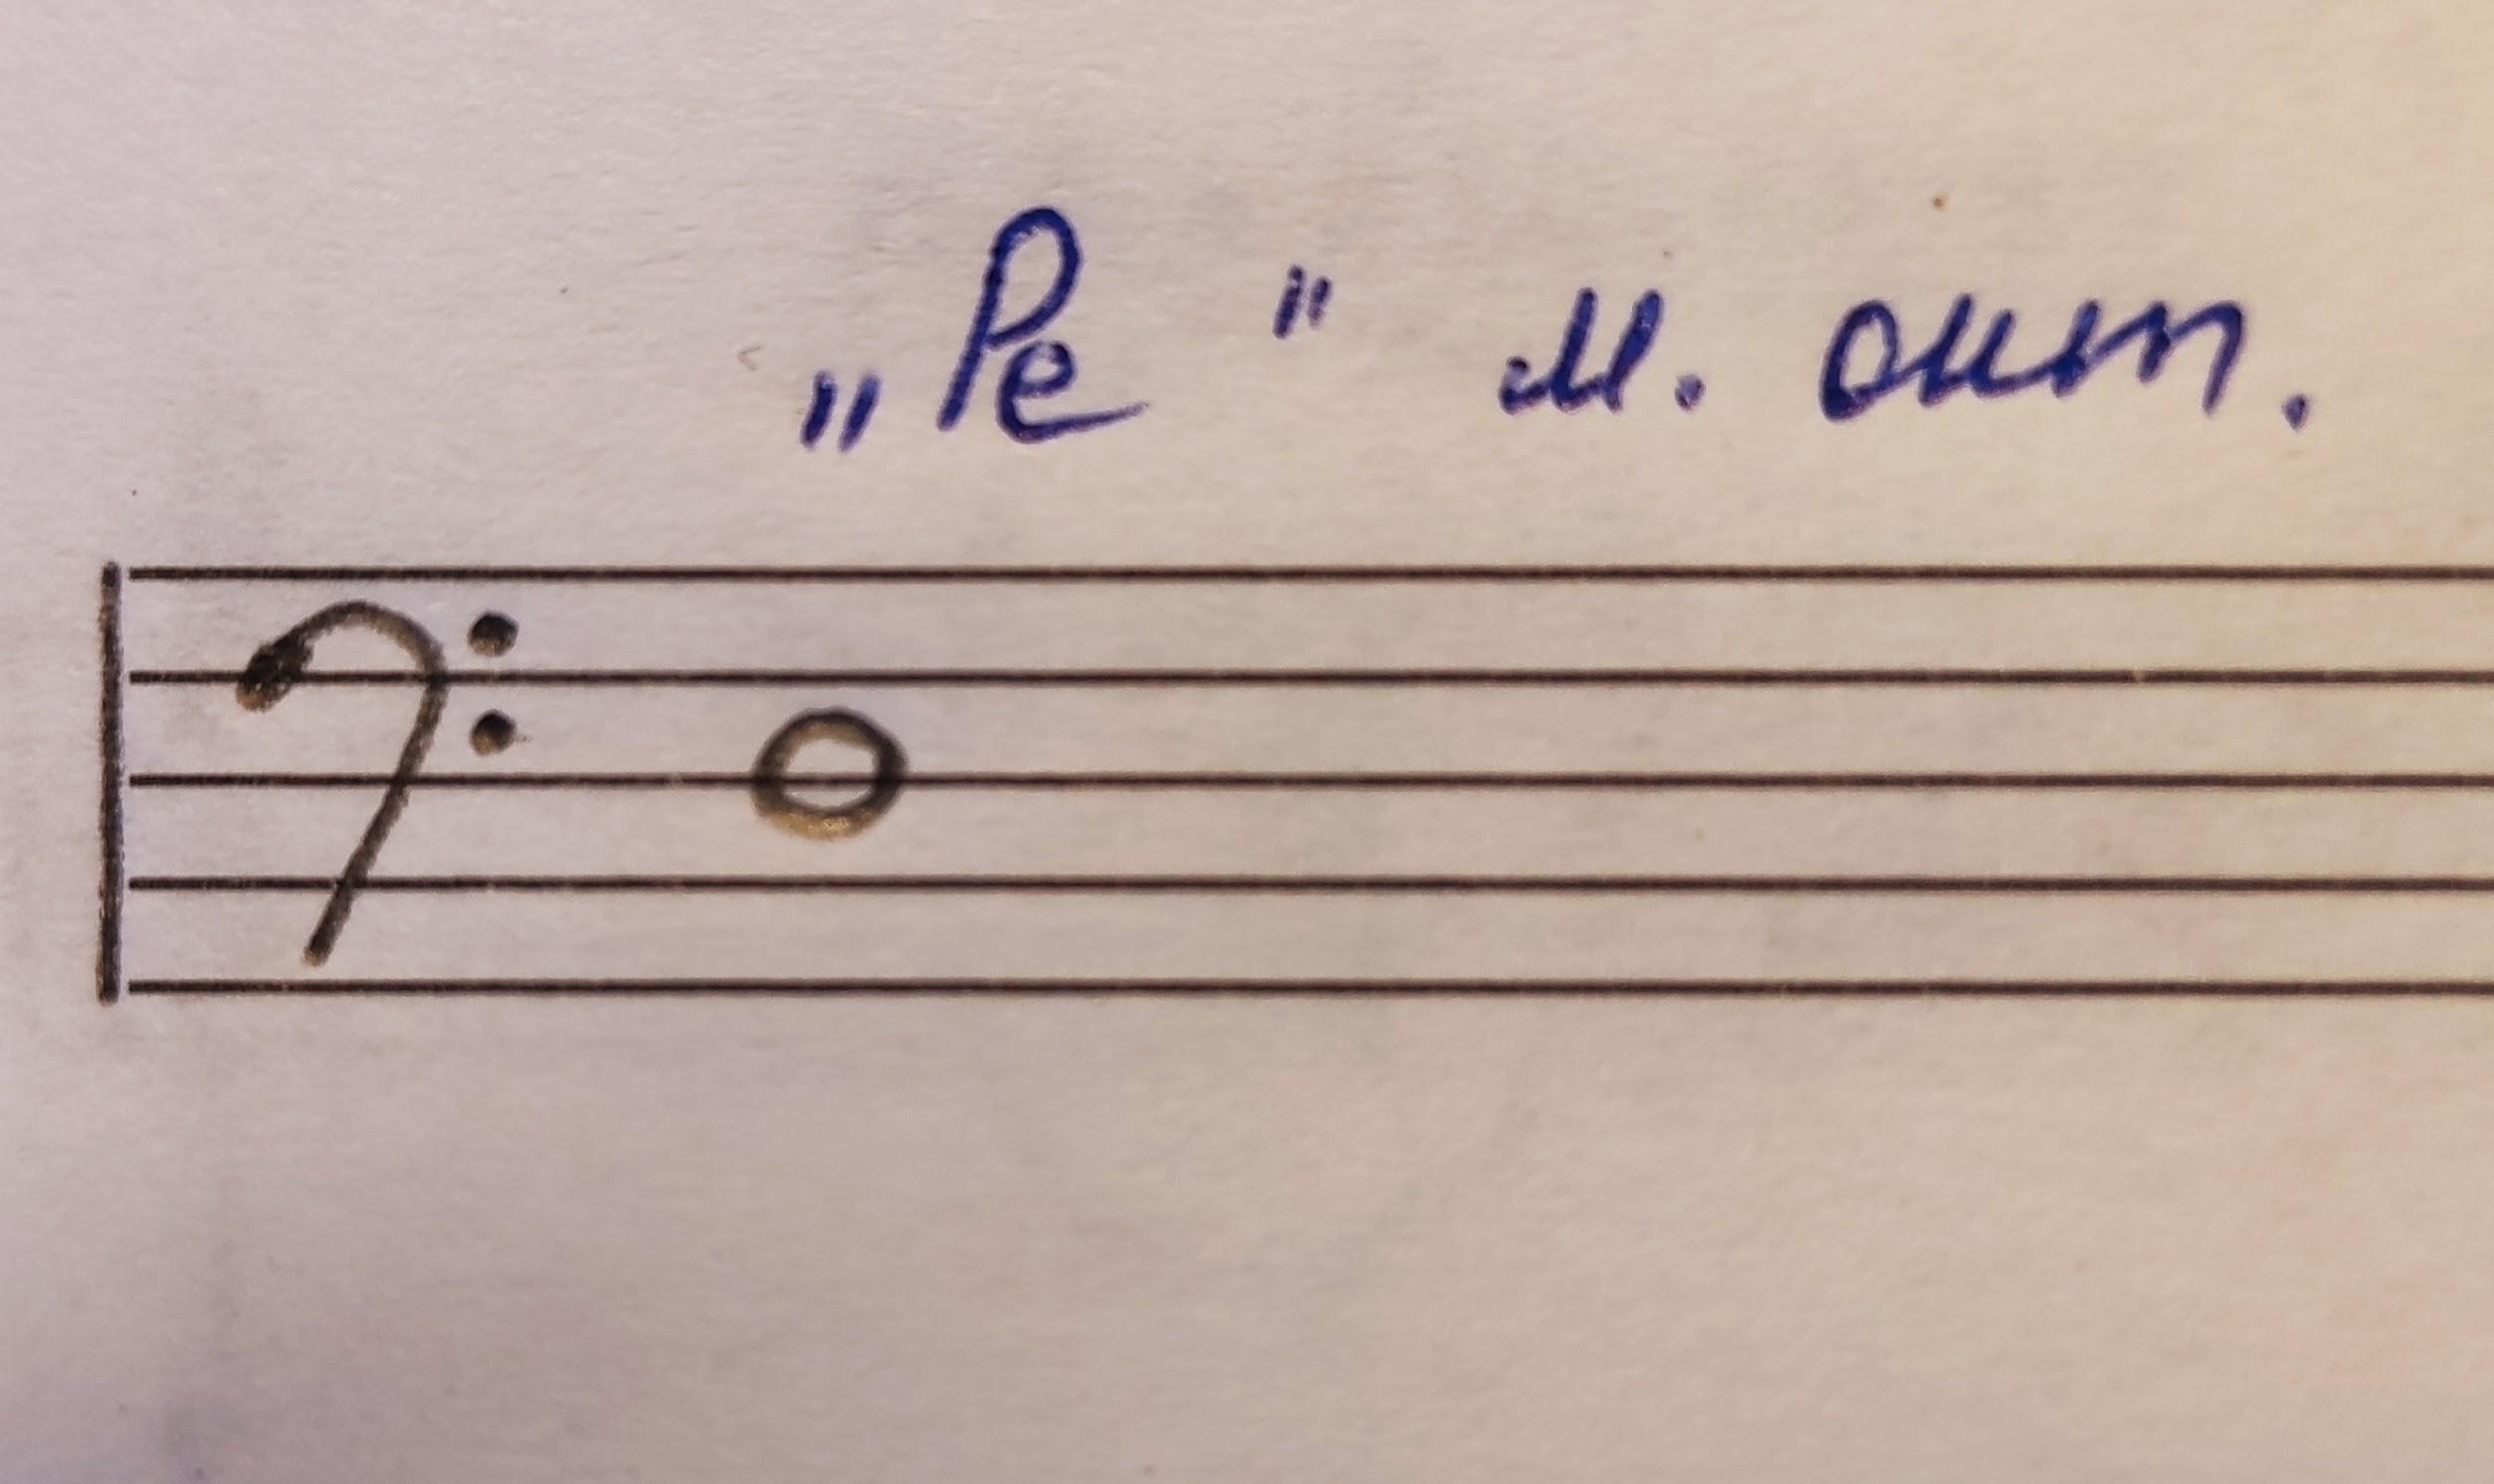 „Ре" м. окт.